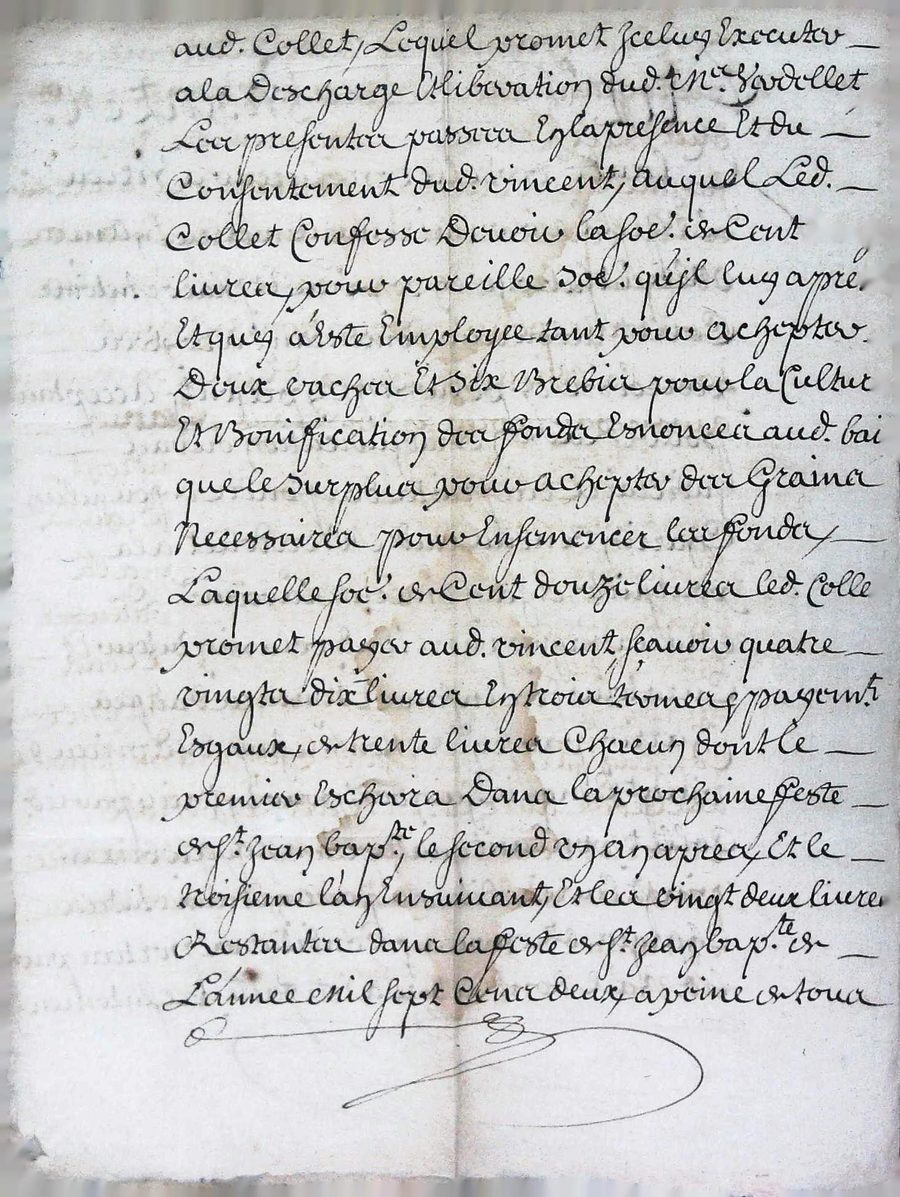 aud. Collet, Lequel promet Jceluy Executer
a la Descharge Et liberation dud. Me. Vardellet
Les presentes passees En la presence Et du
Consentement dud. vincent, auquel Led.
Collet Confesse Devoir la soe. de Cent
livres, pour pareille soe. qu'jl luy a pre.
Et quy a Esté Employee tant pour achepter
Deux vaches Et Six Brebis pour la Cultur
Et Bonification des fonds Esnonces aud. bai
que le Surplus pour achepter des Grains
Necessaires pour Ensemencer les fonds,
Laquelle soe. de Cent douze livres led. Colle
promet payer aud. vincent, scavoir quatre
vingts dix livres En trois termes & payemts
Esgaux, de trente livres Chacun dont le
premier Escherra Dans la prochaine feste
de st. Jean bapte, le second un an apres, Et le
troisieme l'an Ensuivant, Et les vingt deux livres
Restantes dans la feste de st. Jean bapte. de
L'annee Mil sept Cens deux, a peine de tous